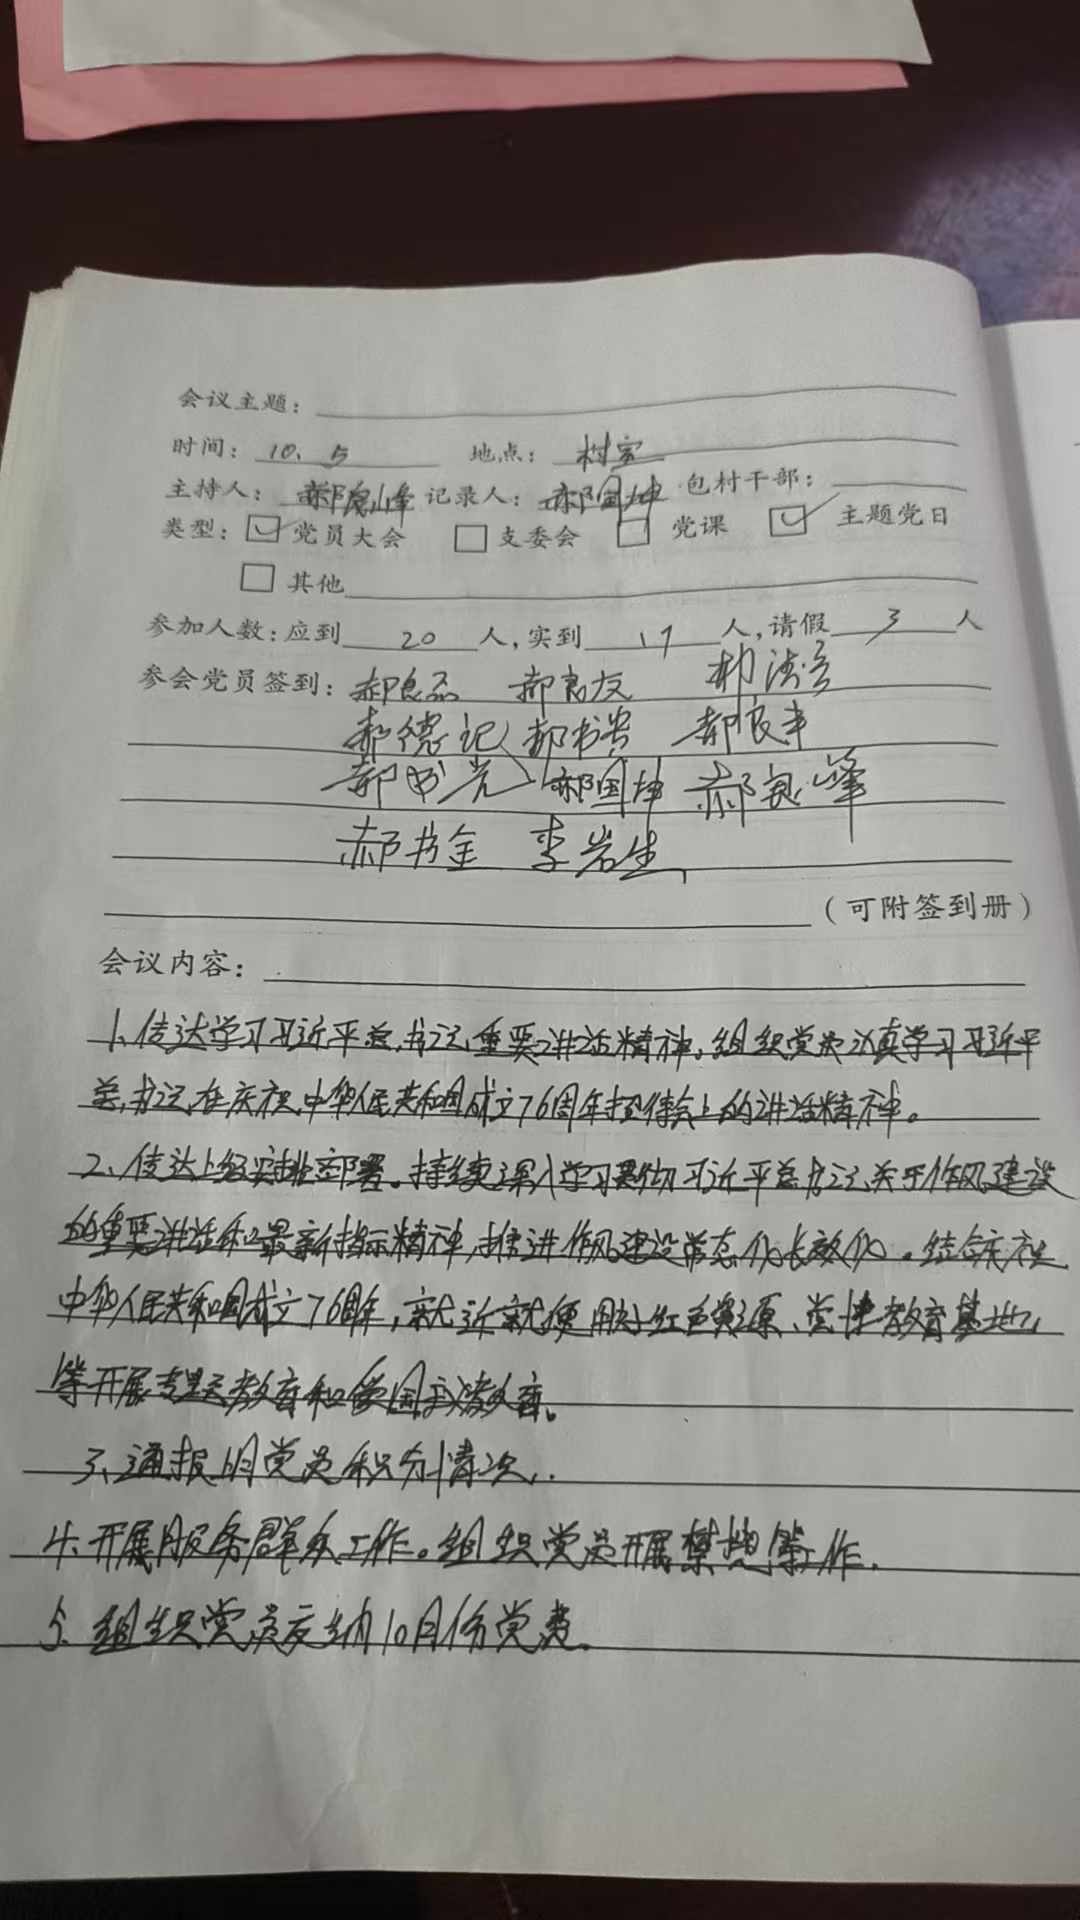 会议主题:
时间: 10、5 地点: 村室
主持人: 郝良峰 记录人: 郝国坤 包村干部:
类型: 党员大会 支委会 党课 主题党日
其他
参加人数:应到 20 人,实到 17 人,请假 3 人
参会党员签到: 郝良 郝良友
郝德记 郝书贵 郝良丰
郝书党 郝国坤 郝良峰
郝书金 李岩生
(可附签到册)
会议内容:
1、传达学习习近平总书记重要讲话精神,组织党员认真学习习近平
总书记在庆祝中华人民共和国成立76周年招待会上的讲话精神。
2、传达上级安排部署。持续深入学习贯彻习近平总书记关于作风建设
的重要讲话和最新指示精神,推进作风建设常态化长效化。结合庆祝
中华人民共和国成立76周年,就近就便用好红色资源、党性教育基地
等开展专题教育和爱国主义教育。
3、通报 月党员积分情况.
4、开展服务群众工作。组织党员开展禁烧等工作.
5、组织党员交纳10月份党费。